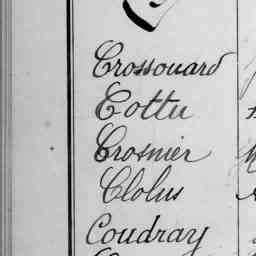 Crossouard
Cottu
Crosnier
Clolus
Coudray